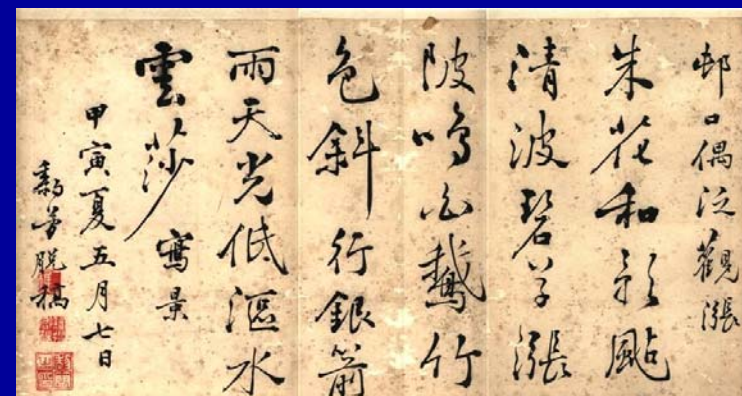 邨口偶泛觀漲
朱花和影颭
清波碧草漲
陂鳴白鵝竹
色斜行銀箭
雨天光低漚水
雲莎寫景
甲寅夏五月七日
脫稿